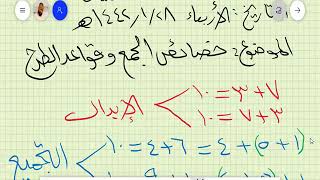 التاريخ: الأربعاء ١٤٤٢/١/٢٨هـ
الموضوع: خصائص الجمع وقواعد الطرح
الإبدال
١٠ = ٣ + ٧
١٠ = ٧ + ٣
التجميع
١٠ = ٤ + ٦ = ٤ + (٥ + ١)